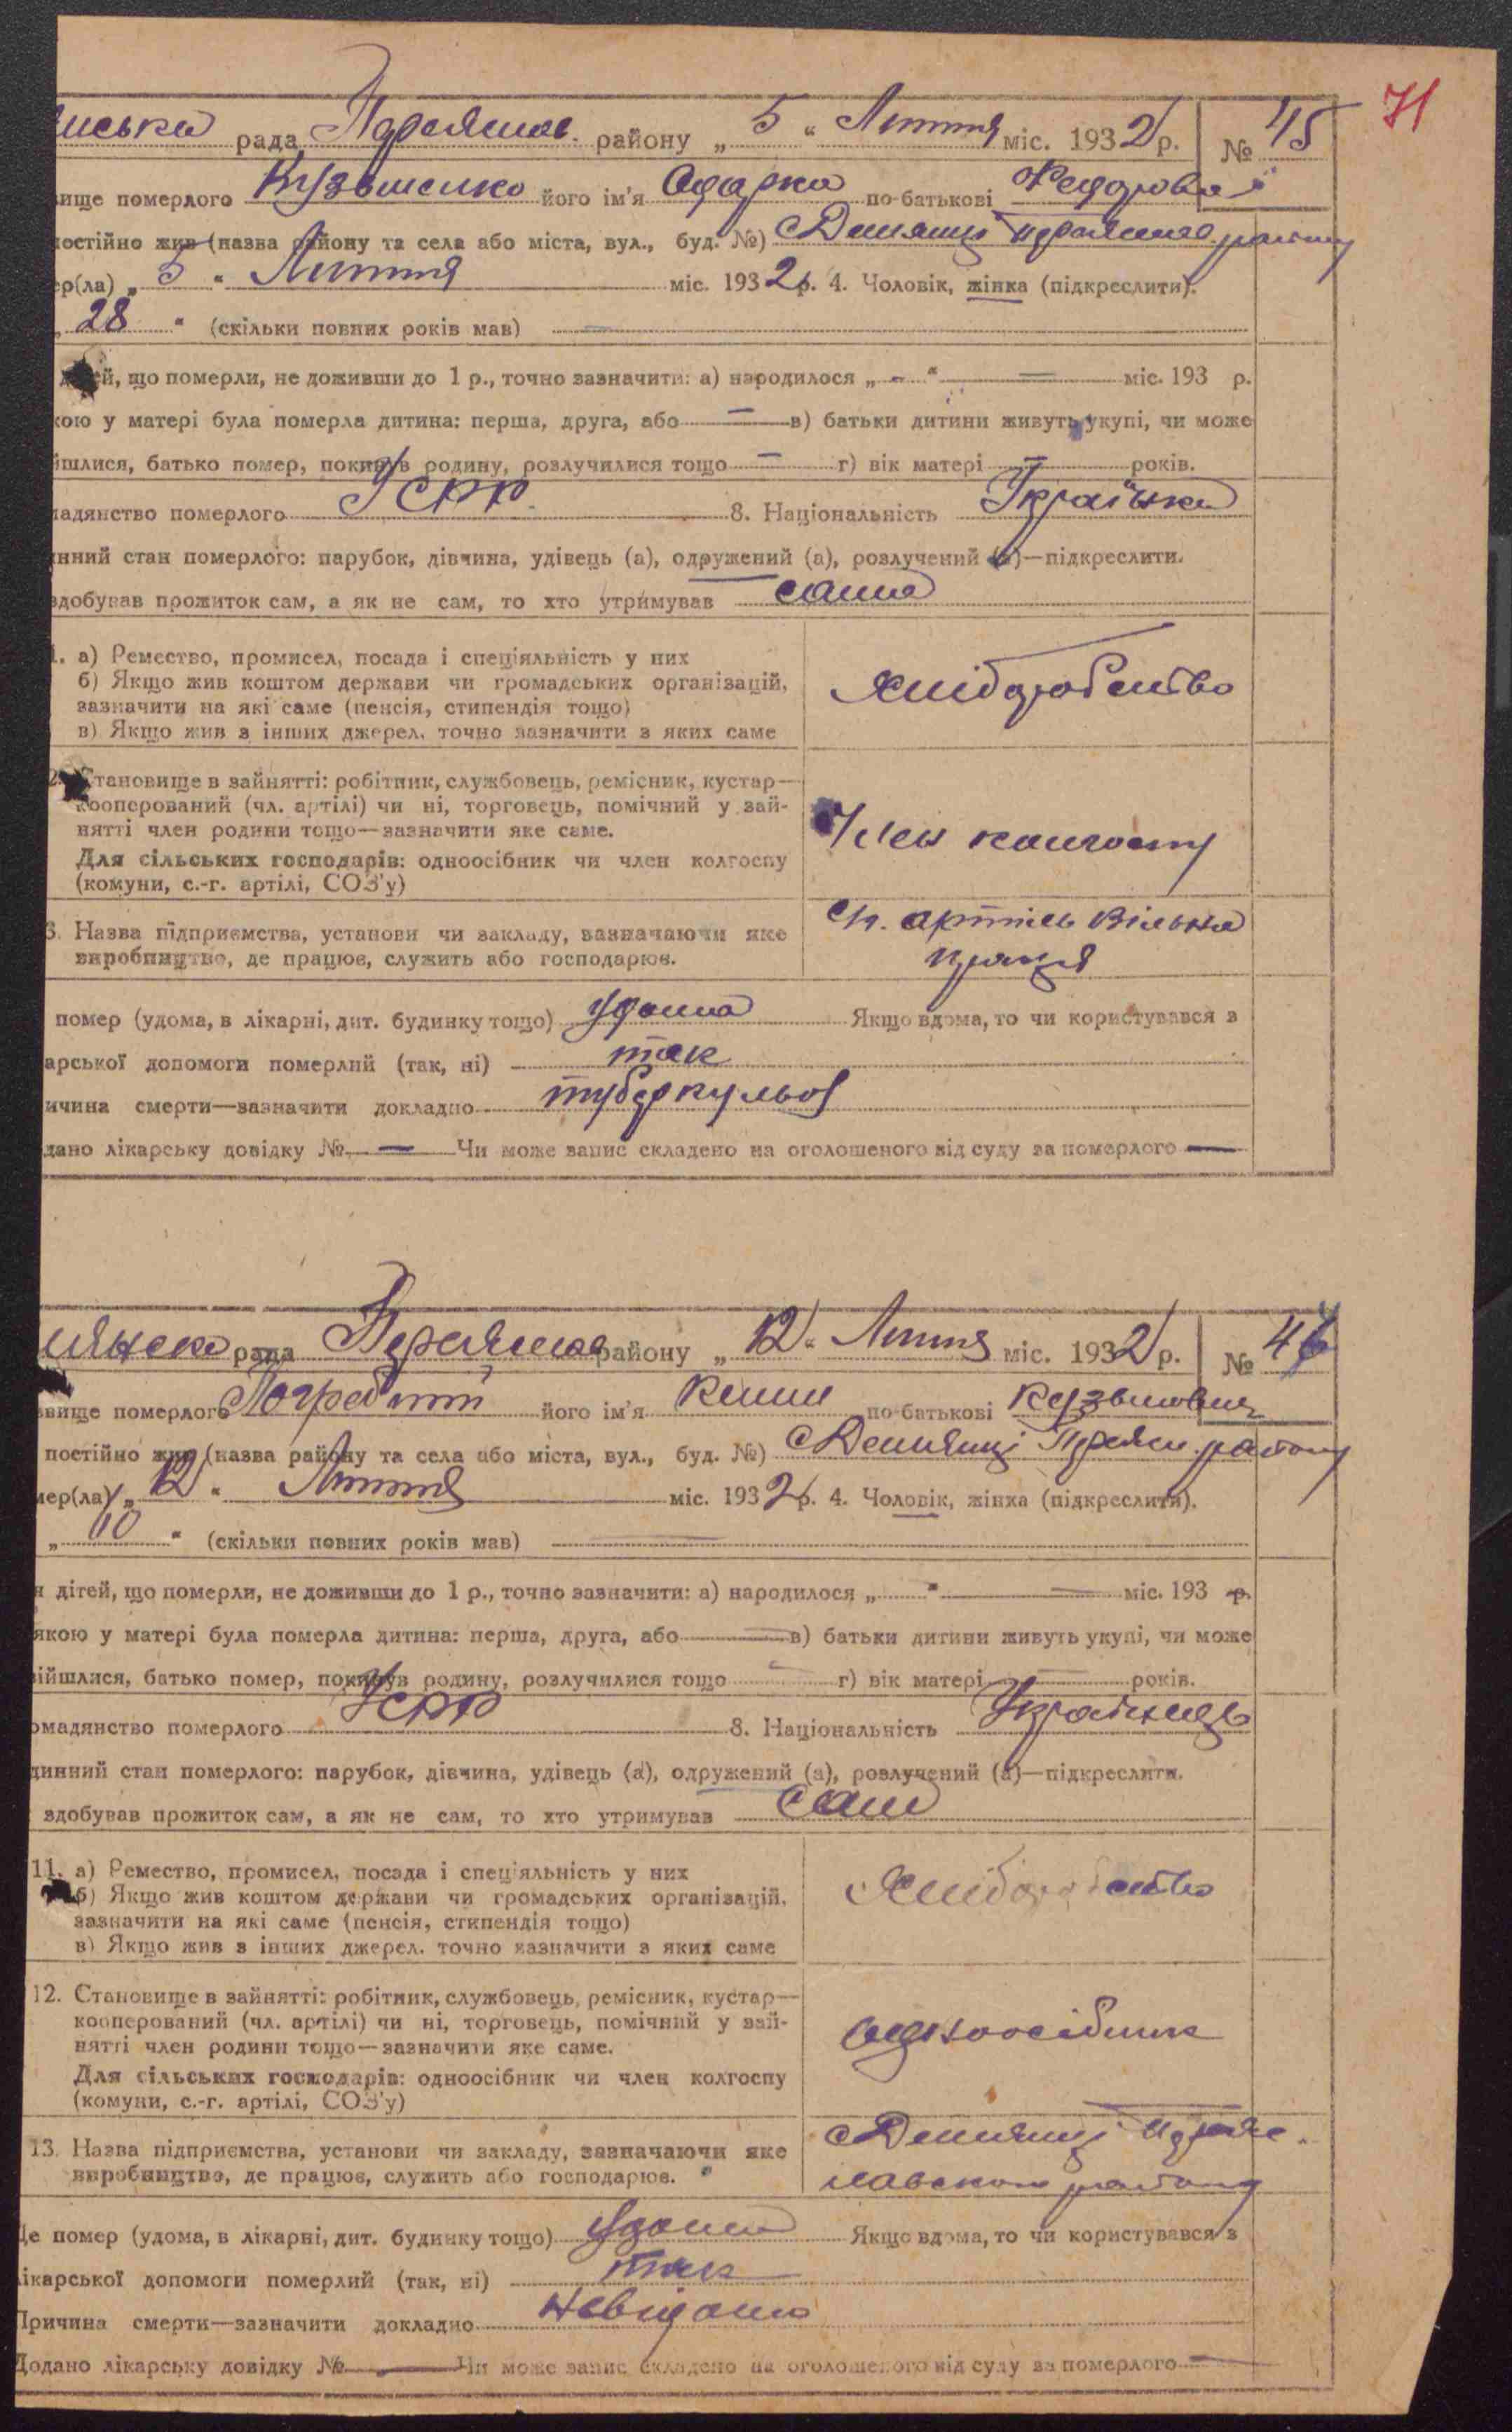 71
нська рада Переяслав. району „ 5 “ Липня міс. 1932 р. № 45
вище померлого Кузьменко його ім'я Одарка по-батькові Федорова
постійно жив (назва району та села або міста, вул., буд. №) с Демянці Переяслав. району
ер(ла) „ 5 “ Липня міс. 1932 р. 4. Чоловік, жінка (підкреслити).
„ 28 “ (скільки повних років мав) —
дітей, що померли, не доживши до 1 р., точно зазначити: а) народилося „ - “ — міс. 193 р.
кою у матері була померла дитина: перша, друга, або — в) батьки дитини живуть укупі, чи може
йшлися, батько помер, покинув родину, розлучилися тощо — г) вік матері — років.
мадянство померлого УСРР. 8. Національність Українка
инний стан померлого: парубок, дівчина, удівець (а), одружений (а), розлучений (а)—підкреслити.
здобував прожиток сам, а як не сам, то хто утримував сама
1. а) Ремество, промисел, посада і спеціяльність у них
б) Якщо жив коштом держави чи громадських організацій,
зазначити на які саме (пенсія, стипендія тощо)
в) Якщо жив з інших джерел, точно зазначити з яких саме
Хліборобство
2. Становище в зайнятті: робітник, службовець, ремісник, кустар—
кооперований (чл. артілі) чи ні, торговець, помічний у зай-
нятті член родини тощо—зазначити яке саме.
Для сільських господарів: одноосібник чи член колгоспу
(комуни, с.-г. артілі, СОЗ'у)
Член колгоспу
3. Назва підприємства, установи чи закладу, зазначаючи яке
виробництво, де працює, служить або господарює.
с/г. артіль Вільна
праця
помер (удома, в лікарні, дит. будинку тощо) удома Якщо вдома, то чи користувався з
арської допомоги померлий (так, ні) так
ичина смерти—зазначити докладно туберкульоз
дано лікарську довідку № — Чи може запис складено на оголошеного від суду за померлого —
мянська рада Переяслав району „ 12 “ Липня міс. 1932 р. № 46
звище померлого Погребний його ім'я Клим по-батькові Кузьмович
постійно жив (назва району та села або міста, вул., буд. №) с Демянці Переясл. району
мер(ла) „ 12 “ Липня міс. 1932 р. 4. Чоловік, жінка (підкреслити).
„ 60 “ (скільки повних років мав) —
я дітей, що померли, не доживши до 1 р., точно зазначити: а) народилося „ “ — міс. 193 р.
якою у матері була померла дитина: перша, друга, або — в) батьки дитини живуть укупі, чи може
війшлися, батько помер, покинув родину, розлучилися тощо — г) вік матері — років.
омадянство померлого УСРР 8. Національність Українець
динний стан померлого: парубок, дівчина, удівець (а), одружений (а), розлучений (а)—підкреслити.
здобував прожиток сам, а як не сам, то хто утримував сам
11. а) Ремество, промисел, посада і спеціяльність у них
б) Якщо жив коштом держави чи громадських організацій,
зазначити на які саме (пенсія, стипендія тощо)
в) Якщо жив з інших джерел, точно зазначити з яких саме
Хліборобство
12. Становище в зайнятті: робітник, службовець, ремісник, кустар—
кооперований (чл. артілі) чи ні, торговець, помічний у зай-
нятті член родини тощо—зазначити яке саме.
Для сільських господарів: одноосібник чи член колгоспу
(комуни, с.-г. артілі, СОЗ'у)
одноосібник
13. Назва підприємства, установи чи закладу, зазначаючи яке
виробництво, де працює, служить або господарює.
с Демянці Переяс-
лавського району
Де помер (удома, в лікарні, дит. будинку тощо) Удома Якщо вдома, то чи користувався з
лікарської допомоги померлий (так, ні) так
Причина смерти—зазначити докладно невідомо
Додано лікарську довідку № — Чи може запис складено на оголошеного від суду за померлого —